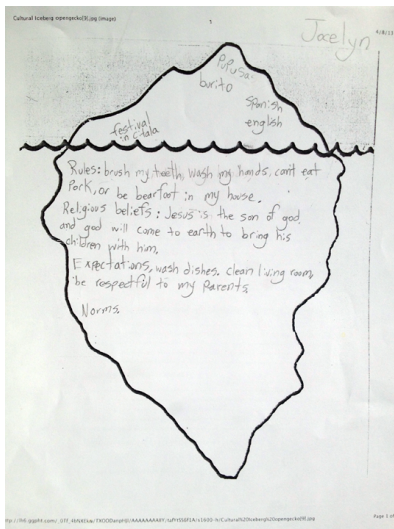 Cultural Iceberg opengecko[3].jpg (Image)
1
Jocelyn
Pupusa
burito
Spanish
english
festival
in citala
Rules: brush my teeth, wash my hands, can't eat
Pork, or be bearfoot in my house.
Religious beliefs: Jesus is the son of god
and god will come to earth to bring his
children with him.
Expectations, wash dishes. clean living room
be respectful to my Parents.
Norms.